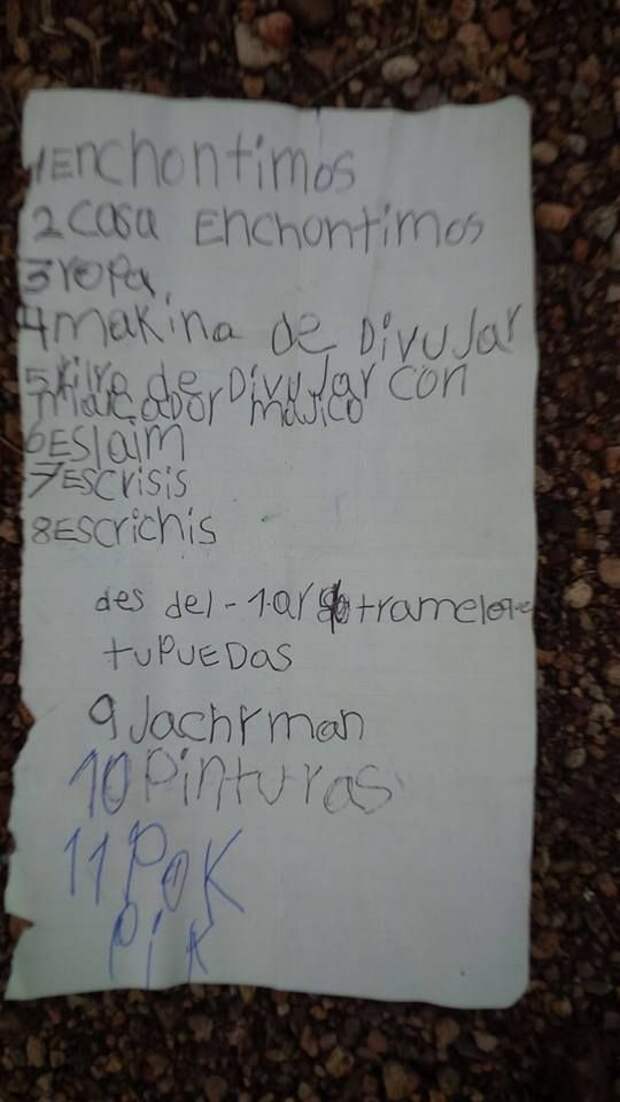 1Enchontimos
2casa Enchontimos
3ropa
4makina de Divujar
5 de Divujar con
marcador majico
6Eslaim
7Escrisis
8Escrichis
des del-1.ar trameloqe
tuPUEDas
9Jachrman
10Pinturas
11Pok
Pik